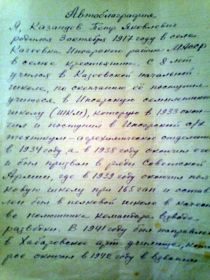 Автобиография
Я Казанцев Петр Яковлевич
родился октября 1917 году в селе
Казеевка Инсарского район МАССР
в семье крестьянина. С 8 лет
учился в Казеевской начальной
школе, по окончанию её поступил
учиться в Инсарскую
школу (ШКМ), которую в 1932 окон
чил и поступил в Инсарский с/х
техникум
в 1934 году, а в 1938 году окончил его
и был призван в ряды Советской
Армии, где в 1939 году окончил пол
ковую школу при 165 сап и остав
лен был в полковой школе в качест
ве помощника командира взвода
разведки. В 1941 году был направлен
в Хабаровское арт. училище, кото
рое окончил в 1942 году в звании